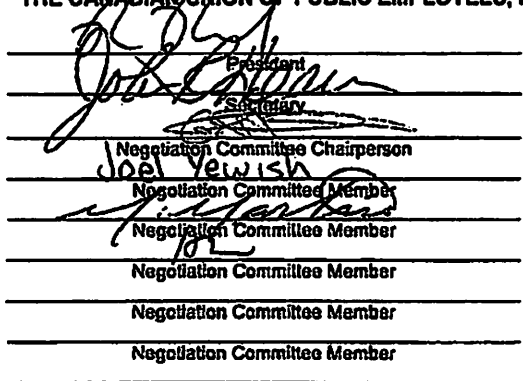 THE CANADIAN UNION OF PUBLIC EMPLOYEES,
President
Secretary
Negotiation Committee Chairperson
Joel Yewish
Negotiation Committee Member
Negotiation Committee Member
Negotiation Committee Member
Negotiation Committee Member
Negotiation Committee Member